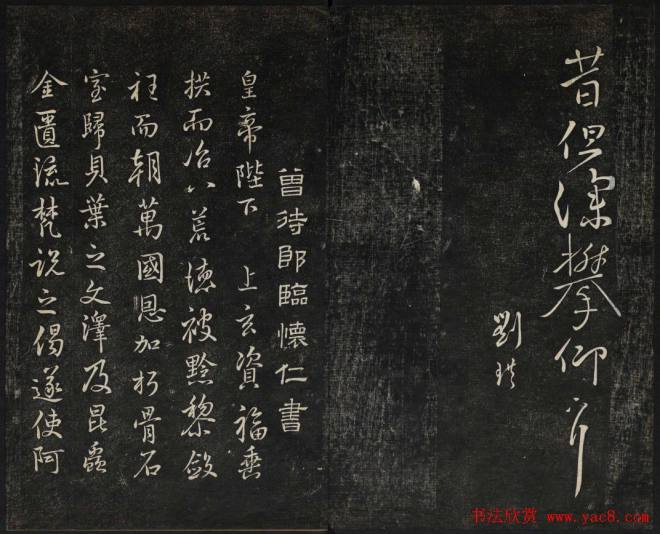 昔但深攀仰⺀耳
劉珙
曾侍郎臨懷仁書
皇帝陛下 上玄資福垂
拱而治八荒德被黔黎斂
衽而朝萬國恩加朽骨石
室歸貝葉之文澤及昆蟲
金匱流梵說之偈遂使阿
书法欣赏 www.yac8.com